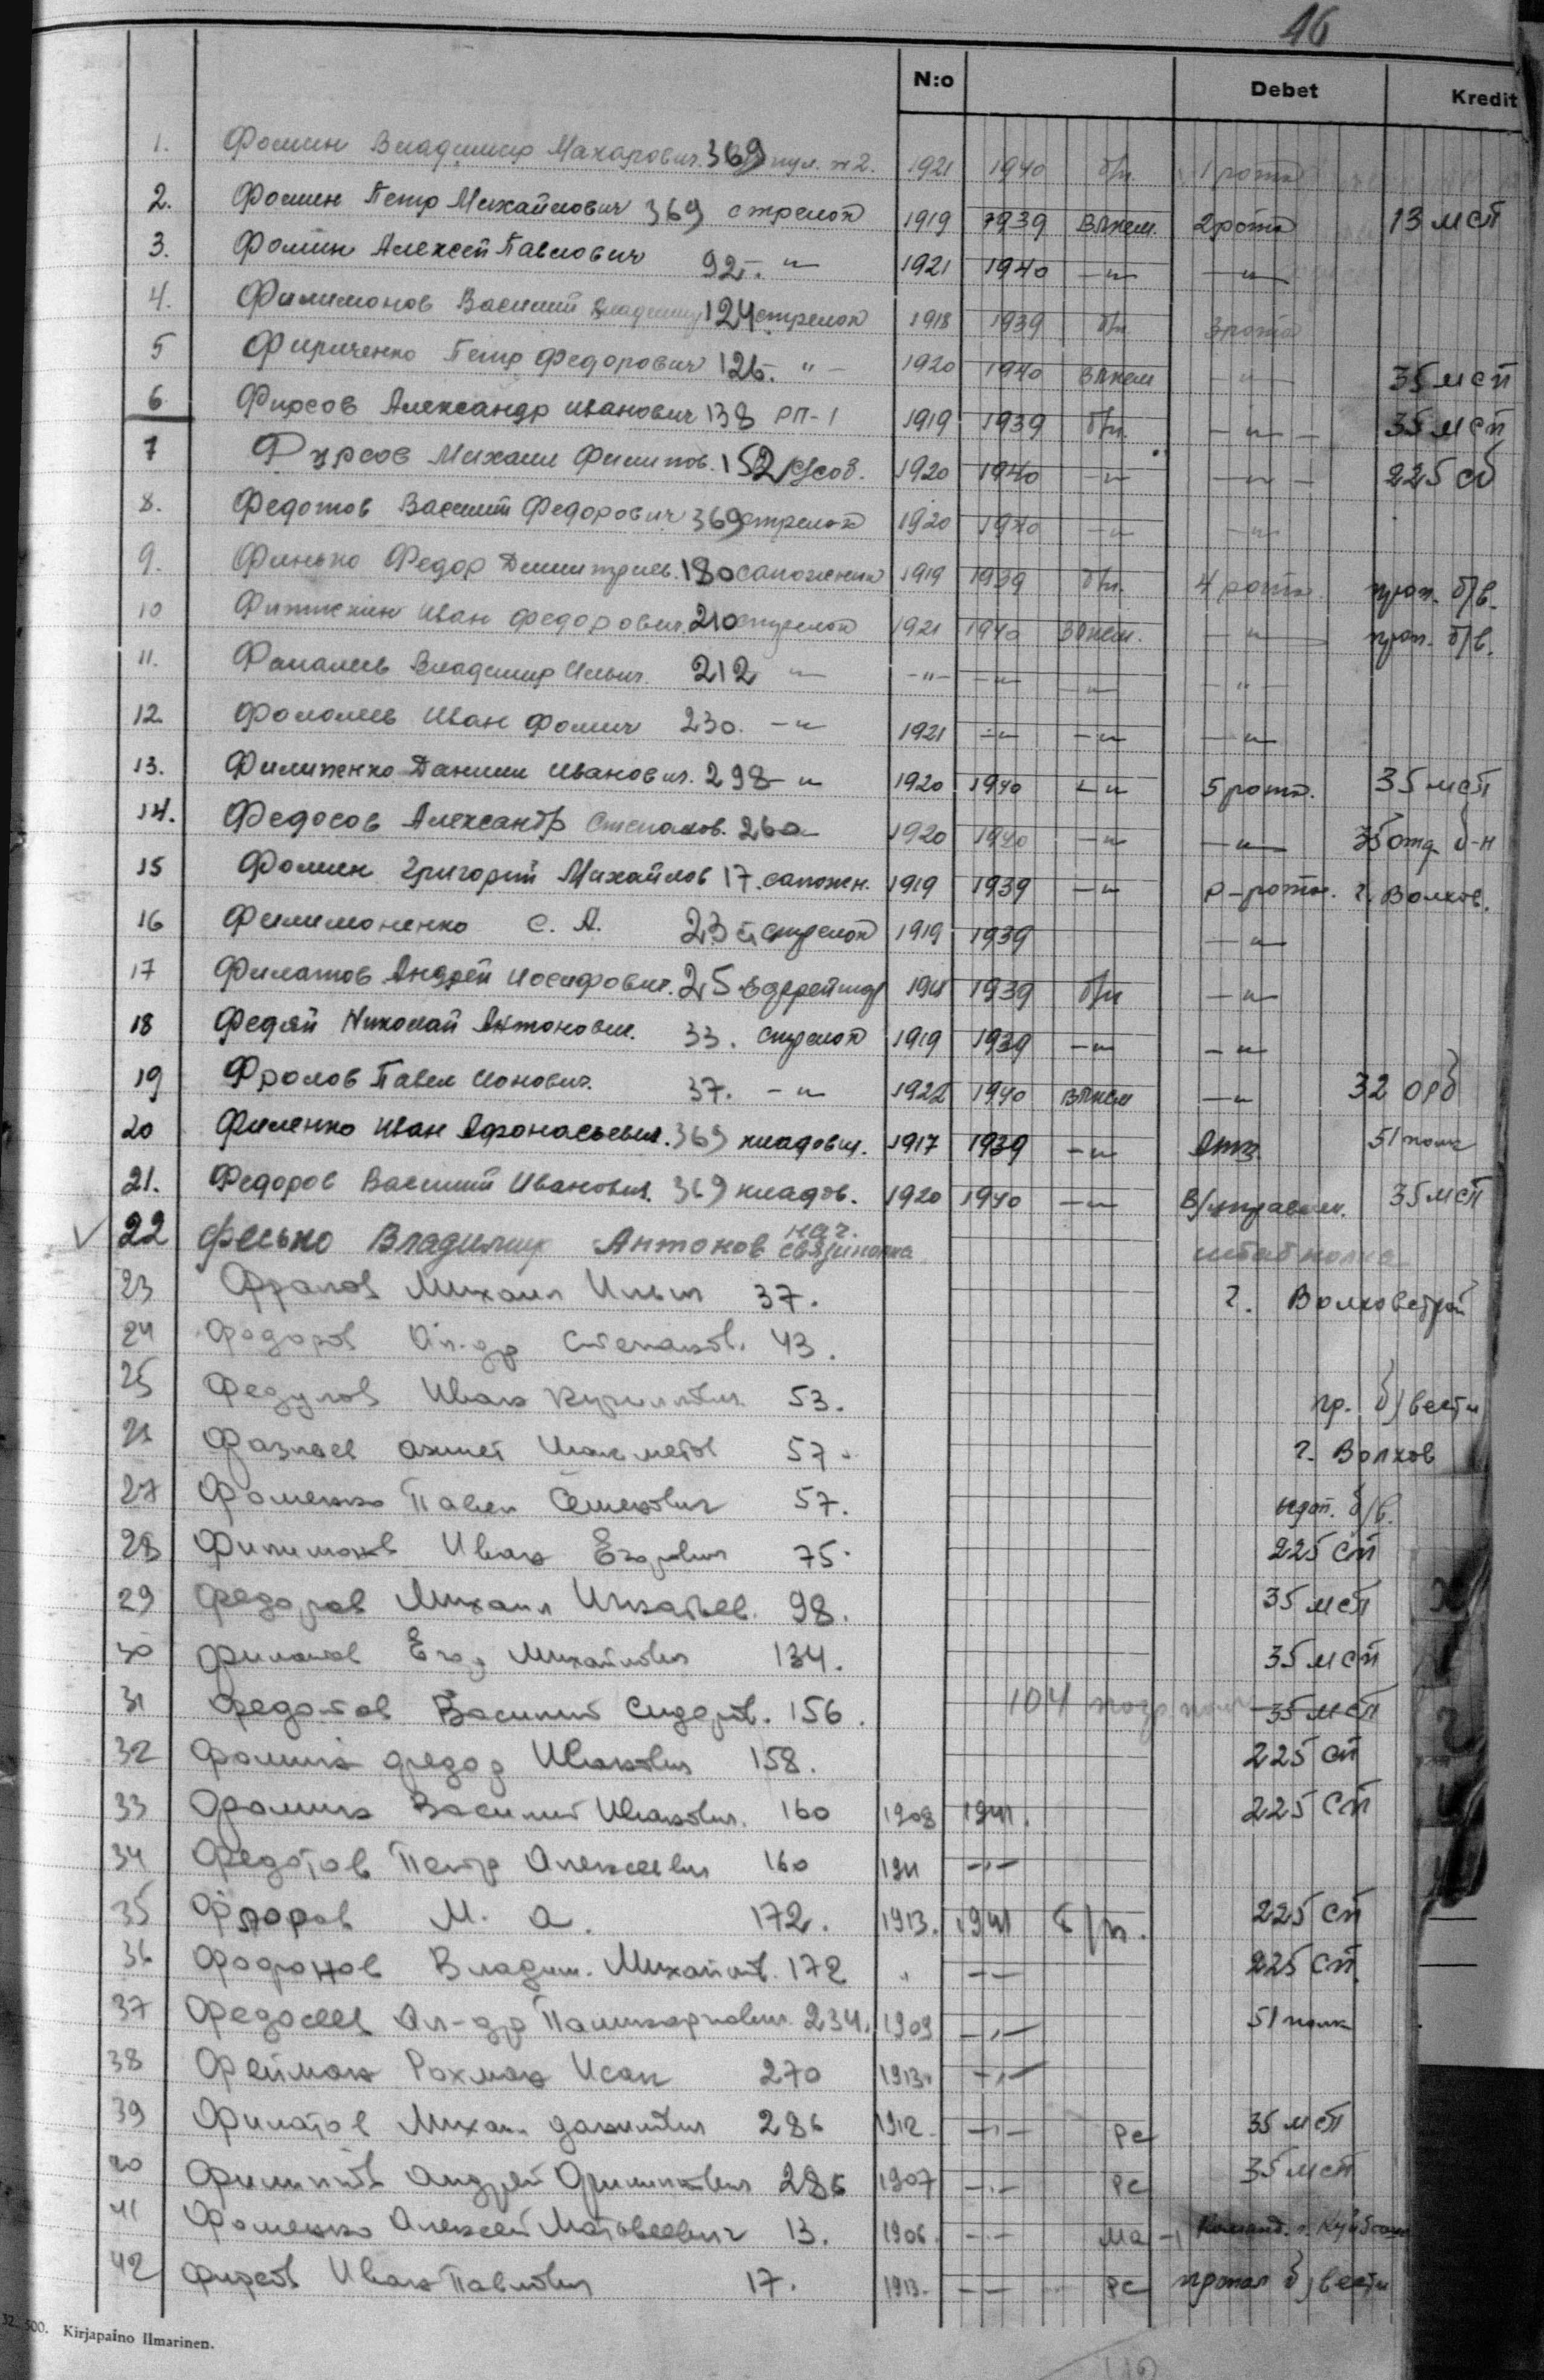 16
N:o Debet Kredit
1. Фомин Владимир Макарович. 369 пул. н2. 1921 1940 б/п. 1 рота
2. Фомин Петр Михайлович 369 стрелок 1919 1939 ВЛКСМ. 2 рота 13 мсп
3. Фомин Алексей Павлович 92. -"- 1921 1940 -"- -"-
4. Филимонов Василий Владимир 124 стрелок 1918 1939 б/п. 3 рота
5 Фириченко Петр Федорович 126. "- 1920 1940 ВЛКСМ -"- 35 мсп
6 Фирсов Александр Иванович 138 РП-1 1919 1939 б/п. -"- 35 мсп
7 Фурсов Михаил Филипов. 152 1920 1940 -"- -"- 225 сп
8. Федотов Василий Федорович 369 стрелок 1920 1940 -"- -"-
9. Финько Федор Дмитриев. 180 сапожник 1919 1939 б/п. 4 рота проп. б/в.
10 Иван Федорович. 210 стрелок 1921 1940 ВЛКСМ. -"- проп. б/в.
11. Владимир Ильич. 212 -"- -"- -"- -"- -"-
12. Иван Фомич 230. -"- 1921 -"- -"- -"-
13. Филипенко Даниил Иванович. 298 -"- 1920 1940 -"- 5 рота. 35 мсп
14. Федосов Александр Степанов. 260 1920 1940 -"- -"- 35 отд б-н
15 Фомин Григорий Михайлов 17. сапожн. 1919 1939 -"- р-рота. г. Волхов.
16 Филимоненко С. А. 23 стрелок 1919 1939 -"-
17 Филатов Андрей Иосифович. 25 1939 б/п -"-
18 Федяй Николай Антонович. 33. стрелок 1919 1939 -"- -"-
19 Фролов Павел Ионович. 37. -"- 1922 1940 ВЛКСМ -"- 32 орб
20 Филенко Иван Афонасьевич. 369 кладовщ. 1917 1939 -"- 51 полк
21. Федоров Василий Иванович. 369 кладов. 1920 1940 -"- В/управлен. 35 мсп
22 Фесько Владимир Антонов нач. связи полка штаб полка
23 Фролов Михаил Ильич 37. г. Волховстрой
24 Федоров Ал-др Степанов. 43.
25 Федулов Иван Кириллович 53. пр. б/вести
Ахмет 57. г. Волхов
27 Фоменко Павел Семенович 57. б/в.
28 Филимонов Иван Егорович 75. 225 сп
29 Федоров Михаил Игнатьев. 98. 35 мсп
30 Филатов Егор Михайлович 134. 35 мсп
31 Федотов Василий Сидоров. 156. 104 погр. полк 35 мсп
32 Фомин Федор Иванович 158. 225 сп
33 Фомин Василий Иванович. 160 1908 1941. 225 сп
34 Федотов Петр Алексеевич 160 1911 -"-
35 М. А. 172. 1913. 1941 б/п. 225 сп
36 Владим. Михайлов. 172 " -"- 225 сп.
37 Федосеев Ал-др Поликарпович 234. 1909 -"- 51 полк
38 Фейман Рохман Исак 270 1913. -"-
39 Филатов Михаил Данилович 286 1912. -"- РС 35 мсп
40 Филиппов Андрей Филиппович 286 1907 -"- РС 35 мсп
41 Фоменко Алексей Матвеевич 13. 1906. -"- Команд. г. Куйбышев
42 Фирсов Иван Павлович 17. 1913. -"- РС пропал б/вести
32. 500. Kirjapaino Ilmarinen.